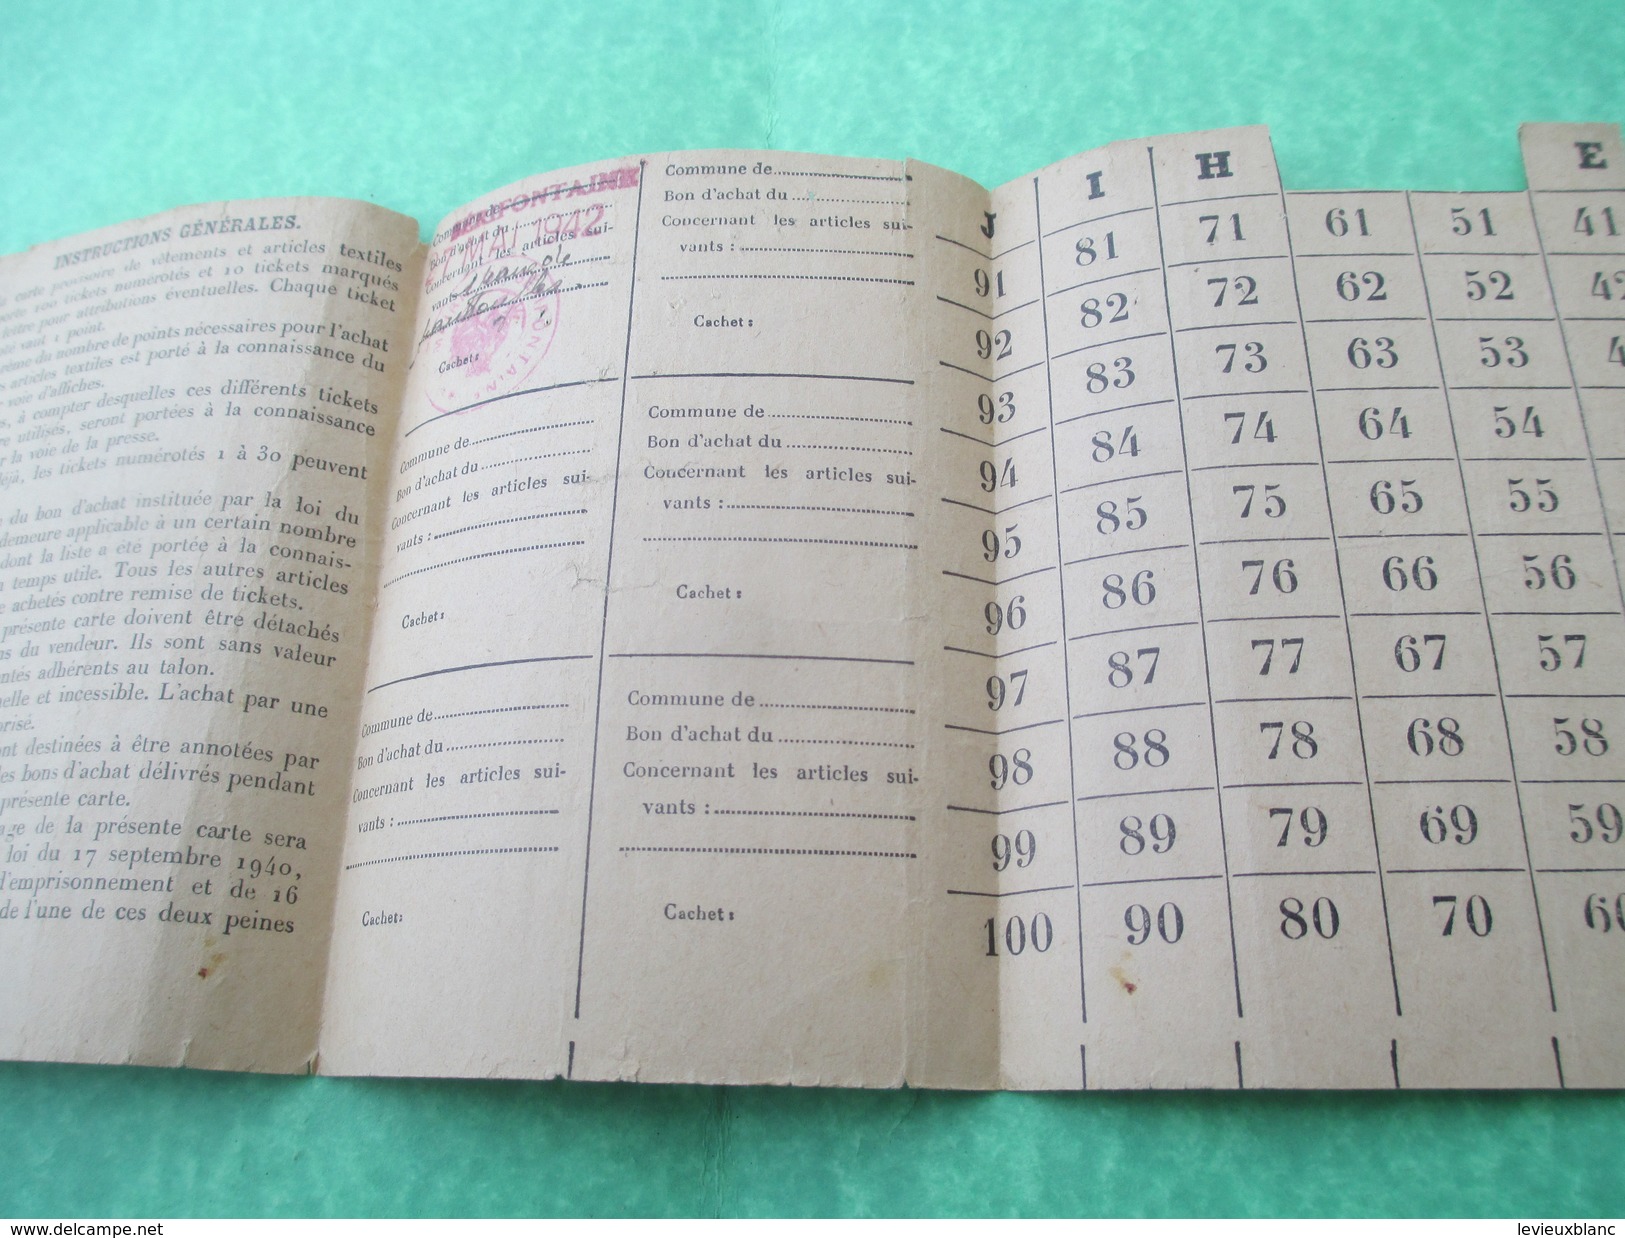 INSTRUCTIONS GÉNÉRALES.
carte provisoire de vêtements et articles textiles
100 tickets numérotés et 10 tickets marqués
lettre pour attributions éventuelles. Chaque ticket
vaut 1 point.
du nombre de points nécessaires pour l'achat
articles textiles est porté à la connaissance du
voie d'affiches.
à compter desquelles ces différents tickets
utilisés, seront portées à la connaissance
la voie de la presse.
les tickets numérotés 1 à 30 peuvent
du bon d'achat instituée par la loi du
demeure applicable à un certain nombre
dont la liste a été portée à la connais-
temps utile. Tous les autres articles
achetés contre remise de tickets.
présente carte doivent être détachés
du vendeur. Ils sont sans valeur
adhérents au talon.
et incessible. L'achat par une
destinées à être annotées par
bons d'achat délivrés pendant
présente carte.
de la présente carte sera
loi du 17 septembre 1940,
d'emprisonnement et de 16
de l'une de ces deux peines
Commune de
FONTAINE
Bon d'achat du
MAI 1942
Concernant les articles sui-
vants :
Cachet :
Commune de
Bon d'achat du
Concernant les articles sui-
vants :
Cachet :
Commune de
Bon d'achat du
Concernant les articles sui-
vants :
Cachet :
Commune de
Bon d'achat du
Concernant les articles sui-
vants :
Cachet :
Commune de
Bon d'achat du
Concernant les articles sui-
vants :
Cachet :
Commune de
Bon d'achat du
Concernant les articles sui-
vants :
Cachet :
J I H E
91 81 71 61 51 41
92 82 72 62 52 42
93 83 73 63 53 4
94 84 74 64 54
95 85 75 65 55
96 86 76 66 56
97 87 77 67 57
98 88 78 68 58
99 89 79 69 59
100 90 80 70 60
www.delcampe.net
levieuxblanc